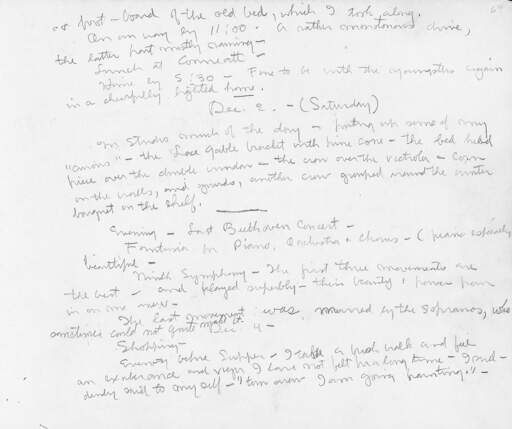 or foot-board of the old bed, which I took along.
On our way by 11:00. A rather monotonous drive,
the latter part mostly raining -
Lunch at Conneaut -
Home by 5:30 - Fine to be with the youngsters again
in a cheerfully lighted home.
Dec. 2. - (Saturday)
In studio much of the day - putting up some of my
"curios" - the Lace Gable bracket with pine cone - the bed head
piece over the double window - the crow over the victrola - Corn
on the walls, and gourds, another crow grouped around the winter
bouquet on the shelf.
Evening - Last Beethoven Concert -
Fantasia for Piano, Orchestra & Chorus - (piano especially
beautiful -
Ninth Symphony - The first three movements are
the best - and played superbly - their beauty & power
in on one
The last movement was marred by the sopranos, who
sometimes could not quite make it.
Dec. 4 -
Shopping -
Evening before supper - I take a brisk walk and feel
an exuberance and vigor I have not felt for a long time - I
said to myself - "tomorrow I am going painting." -